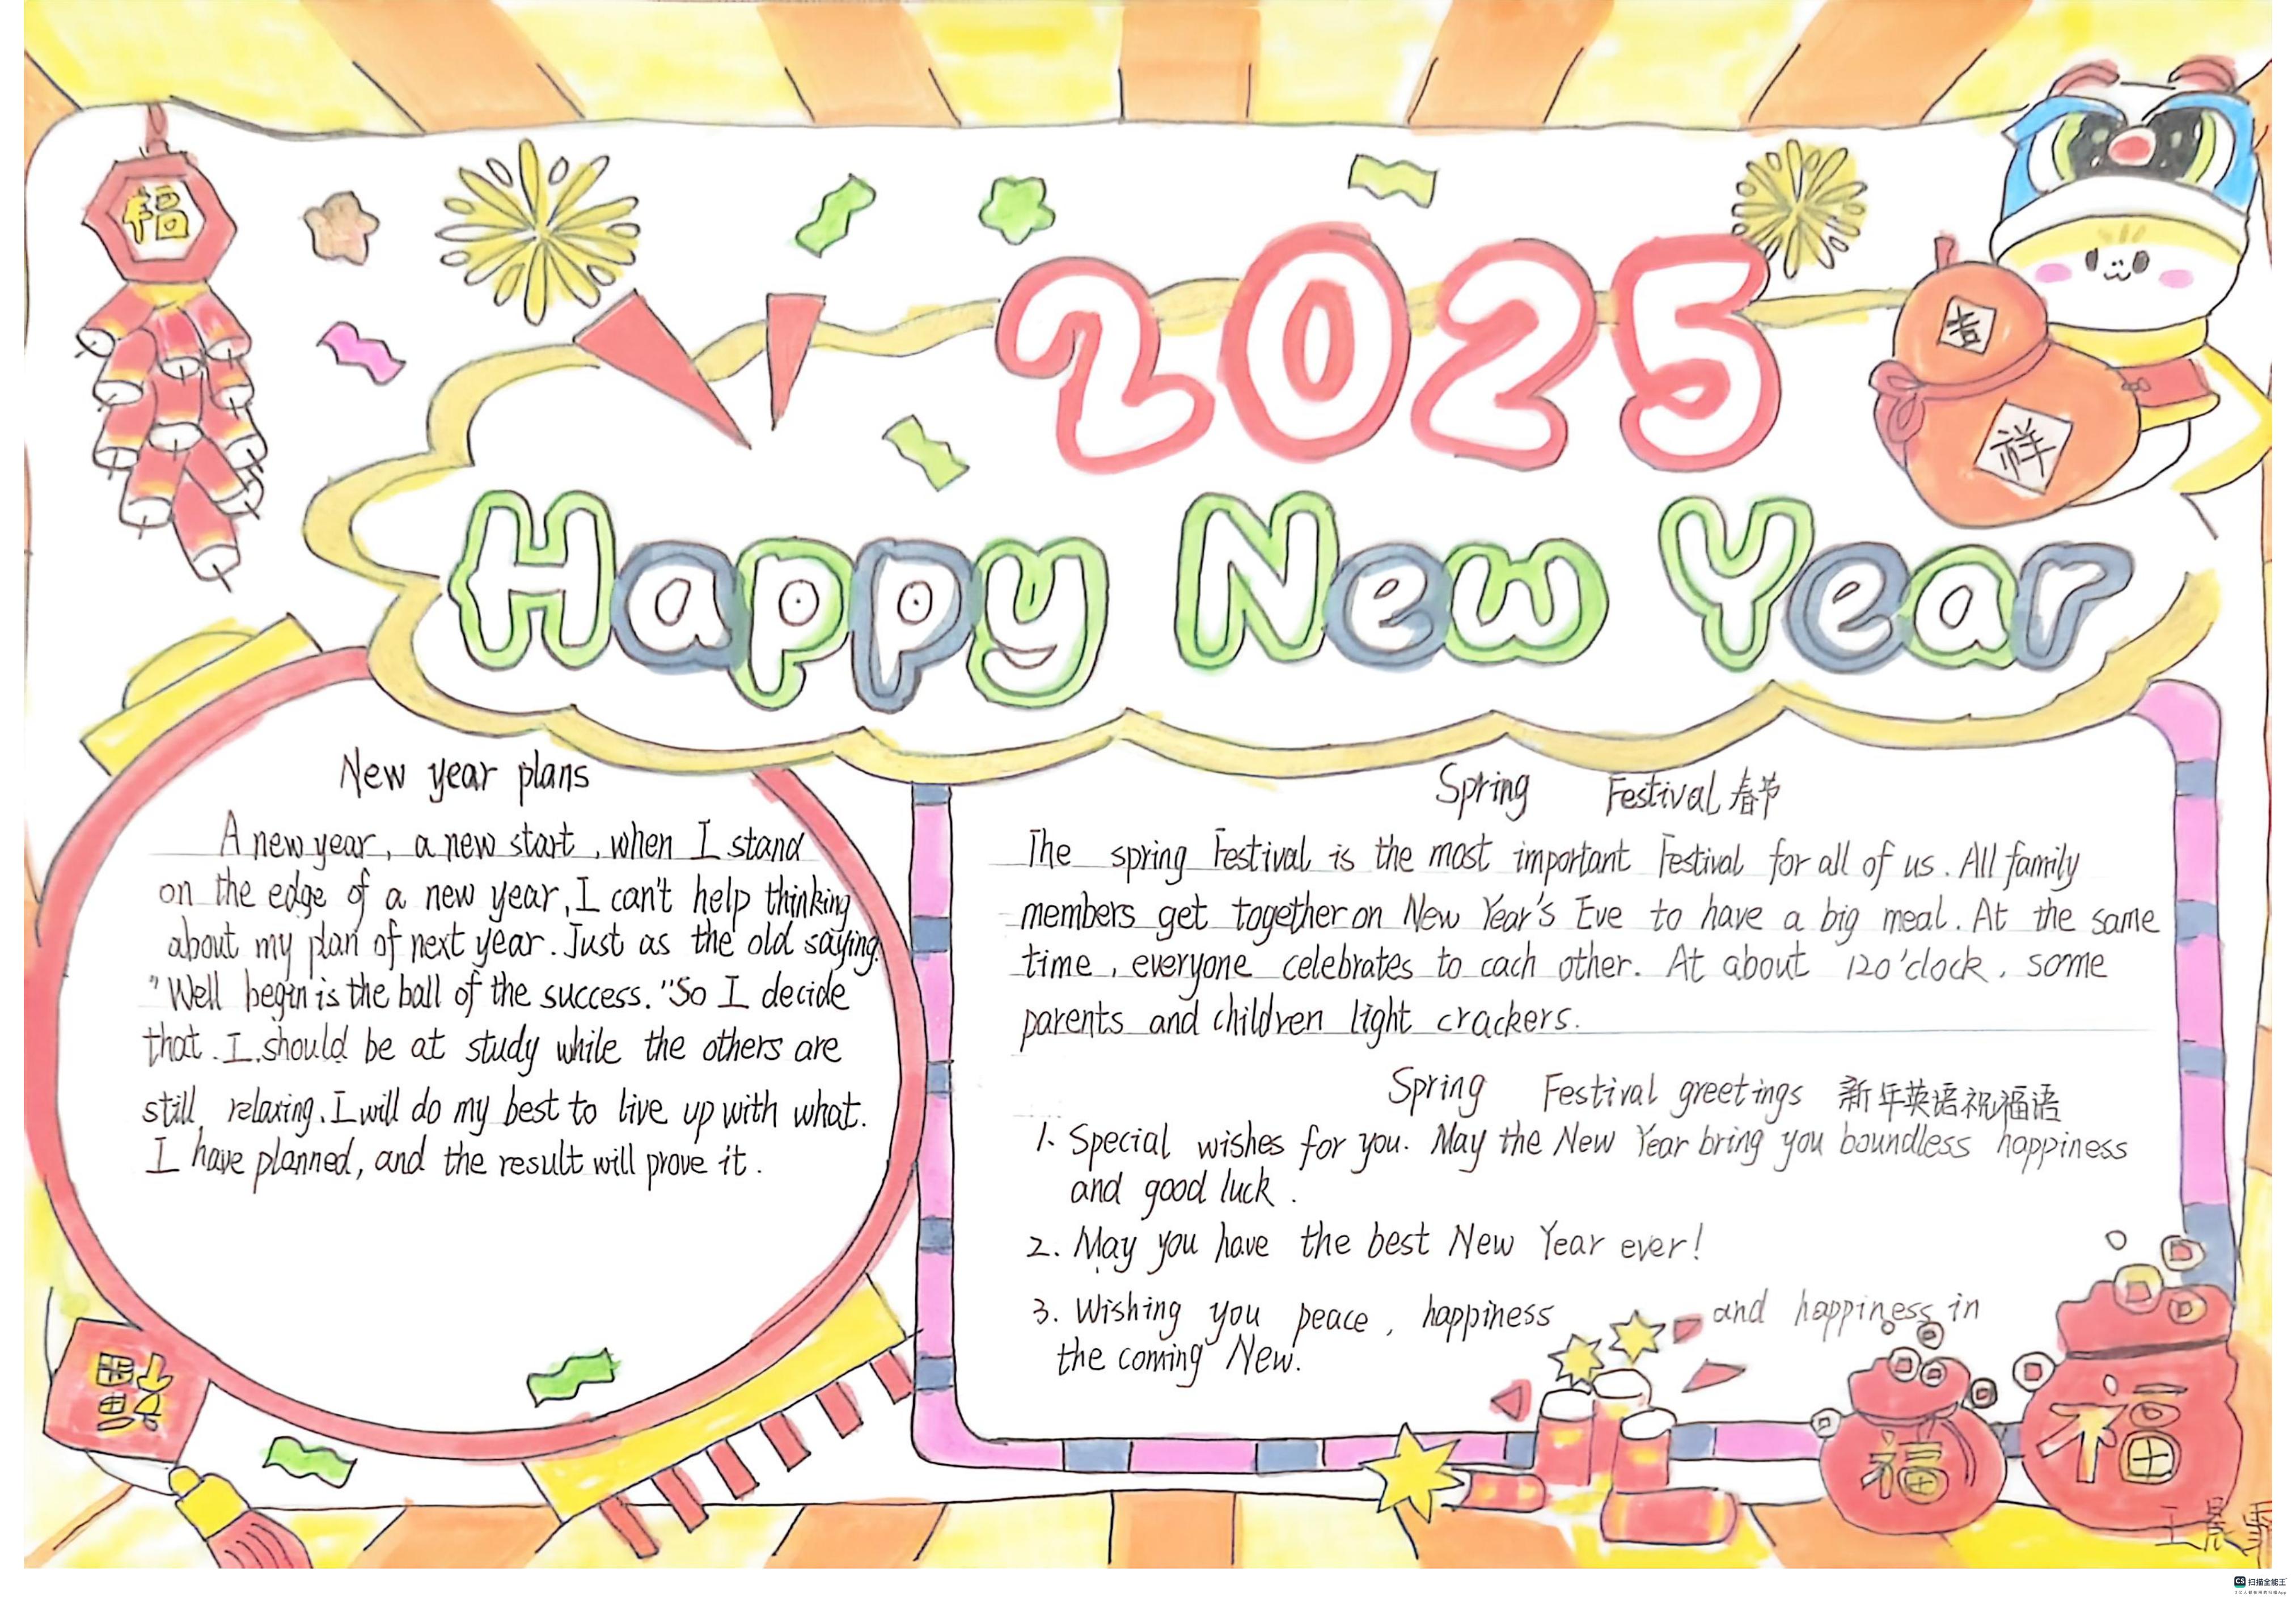 福
2025
吉
祥
Happy New Year
New year plans
A new year, a new start, when I stand
on the edge of a new year, I can't help thinking
about my plan of next year. Just as the old saying.
"Well begin is the ball of the success."So I decide
that. I should be at study while the others are
still relaxing. I will do my best to live up with what.
I have planned, and the result will prove it.
Spring Festival 春节
The spring Festival is the most important Festival for all of us. All family
members get together on New Year's Eve to have a big meal. At the same
time, everyone celebrates to cach other. At about 120'clock, some
parents and children light crackers.
Spring Festival greetings 新年英语祝福语
1. Special wishes for you. May the New Year bring you boundless happiness
and good luck.
2. May you have the best New Year ever!
3. Wishing you peace, happiness and happiness in
the coming New.
福
福
福
王晨
CS 扫描全能王
3亿人都在用的扫描App